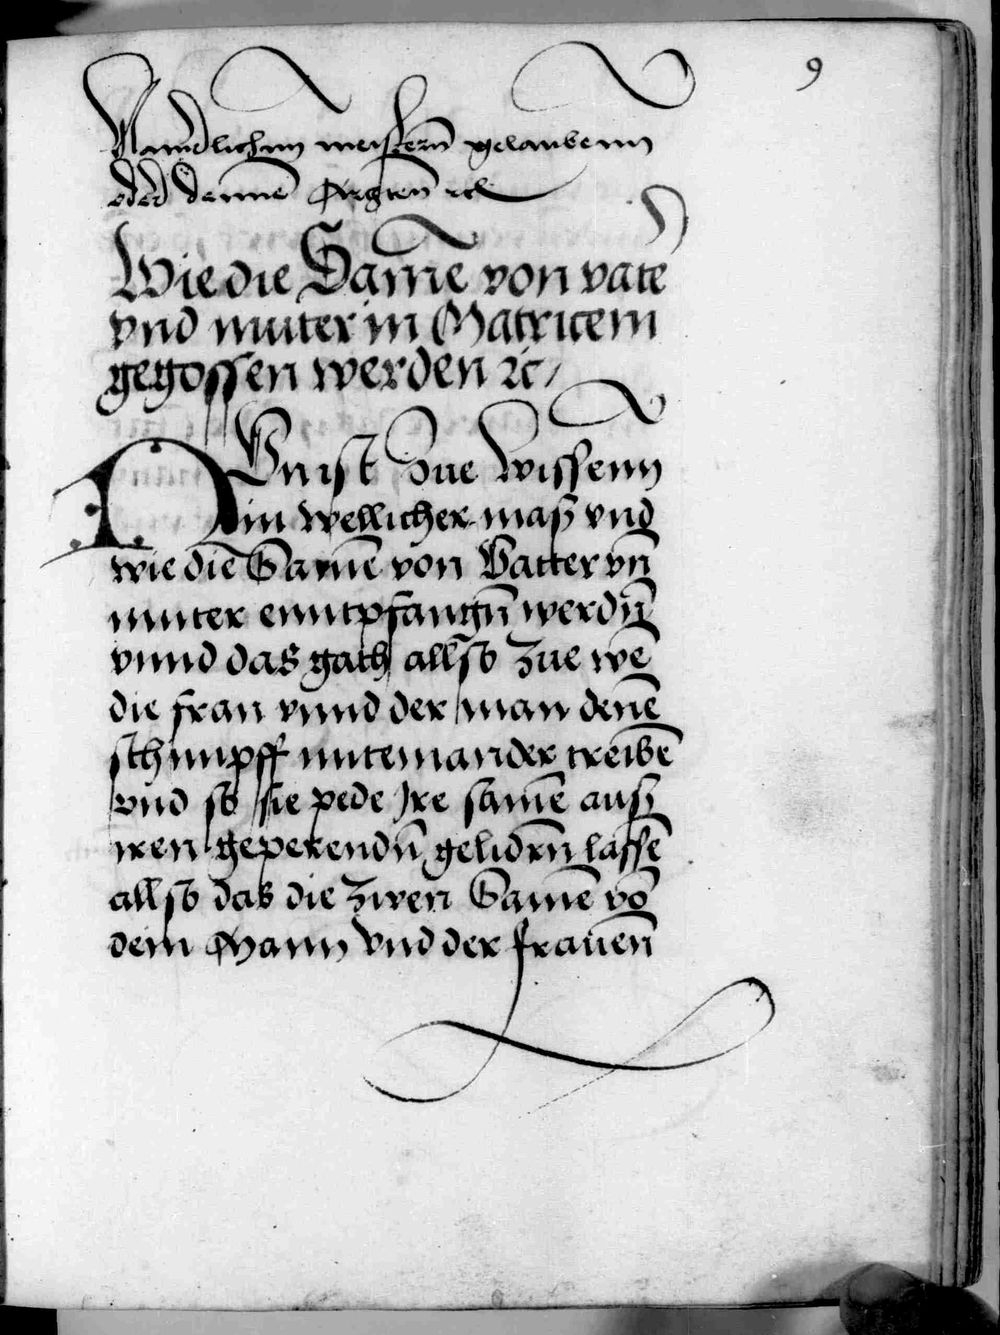 9
Namdlichnn meistern̄ gelaubenn
oder dennē Ärgten̄ ꝛcꝭ
Wie die Samē von vatē
vnd muter in Matricem
gegossen werden ꝛc /
NVn ist Zue wissenn
in wellicher maß vnd
wie die Samē von Vatter vn̄
muter enntpfangn̄ werdn̄
vnnd das gach allso zue wē
die frau vnnd der man denē
schimpff miteinander treibē
vnd so sie pede Jre samē auß
iren geperendn̄ gelidrn̄ lassē
allso das die zwen Samē vō
dem Mann vnd der frauen̄